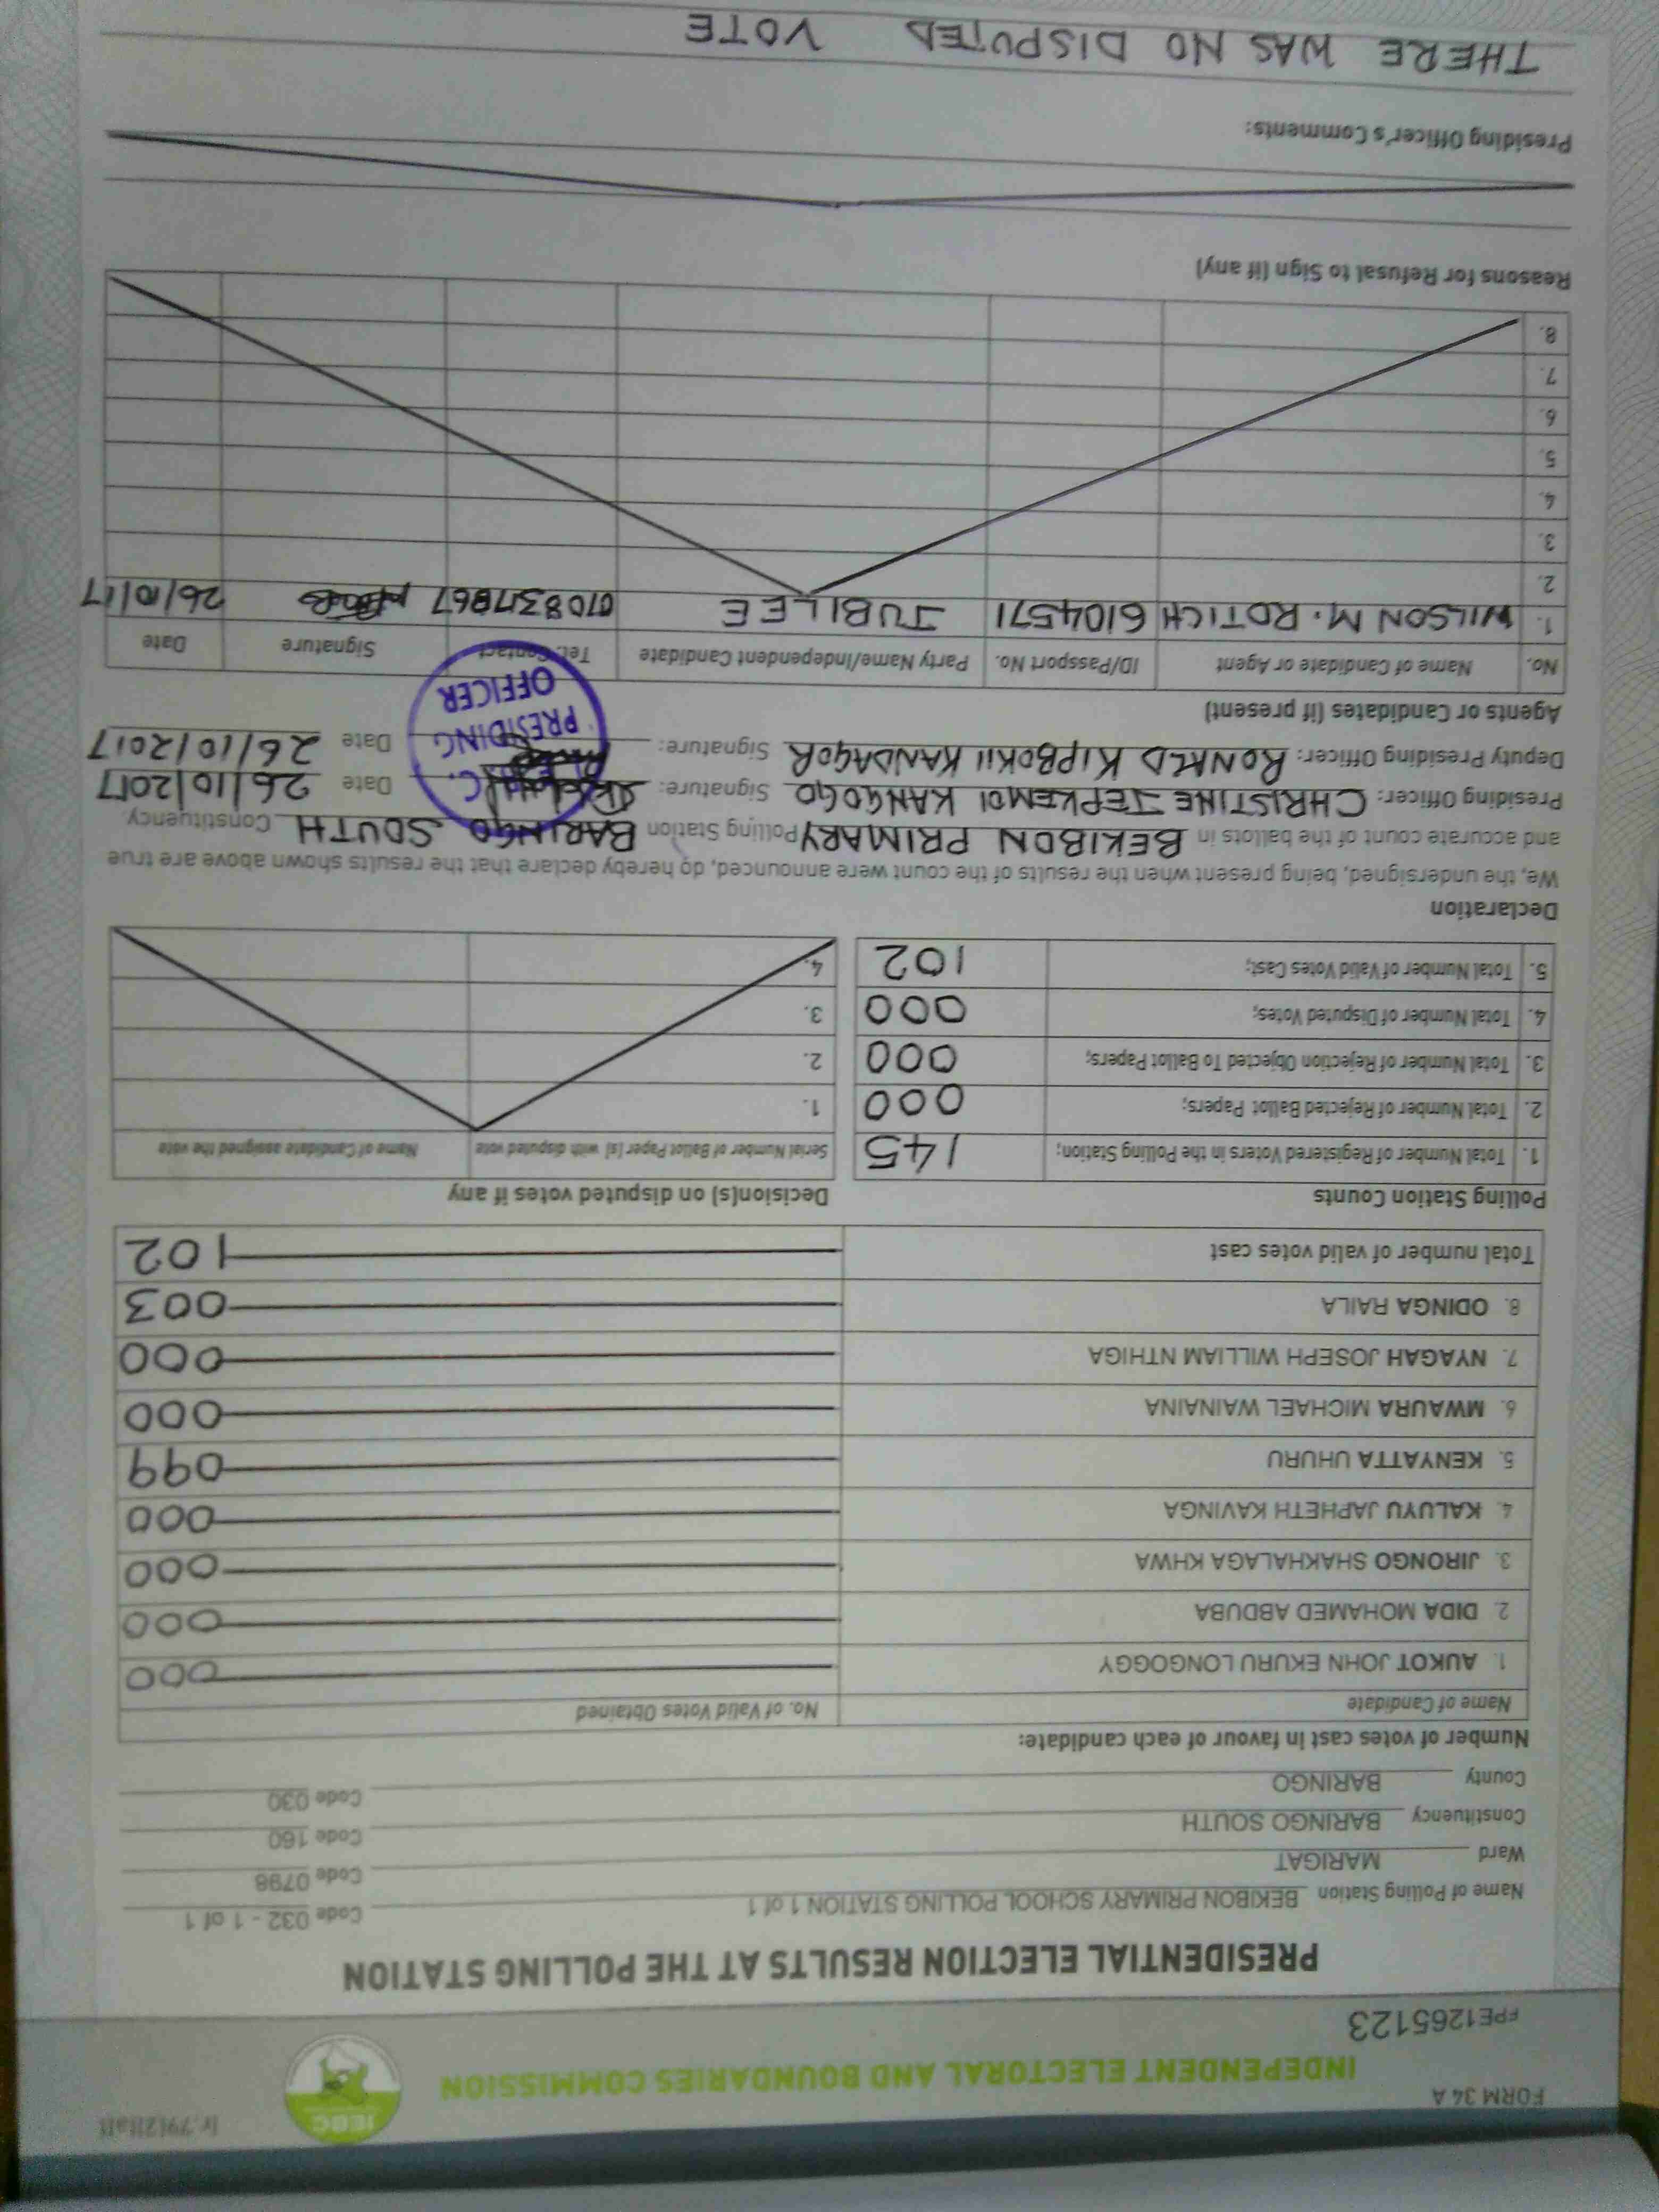 FORM 34 A
(r.79(2)(a))
INDEPENDENT ELECTORAL AND BOUNDARIES COMMISSION
IEBC
FPE1265123
PRESIDENTIAL ELECTION RESULTS AT THE POLLING STATION
Name of Polling Station BEKIBON PRIMARY SCHOOL POLLING STATION 1 of 1 Code 032 - 1 of 1
Ward MARIGAT Code 0798
Constituency BARINGO SOUTH Code 160
County BARINGO Code 030
Number of votes cast in favour of each candidate:
Name of Candidate No. of Valid Votes Obtained
1. AUKOT JOHN EKURU LONGOGGY 000
2. DIDA MOHAMED ABDUBA 000
3. JIRONGO SHAKHALAGA KHWA 000
4. KALUYU JAPHETH KAVINGA 000
5. KENYATTA UHURU 099
6. MWAURA MICHAEL WAINAINA 000
7. NYAGAH JOSEPH WILLIAM NTHIGA 000
8. ODINGA RAILA 003
Total number of valid votes cast 102
Polling Station Counts Decision(s) on disputed votes if any
1. Total Number of Registered Voters in the Polling Station; 145 Serial Number of Ballot Paper (s) with disputed vote Name of Candidate assigned the vote
2. Total Number of Rejected Ballot Papers; 000 1.
3. Total Number of Rejection Objected To Ballot Papers; 000 2.
4. Total Number of Disputed Votes; 000 3.
5. Total Number of Valid Votes Cast; 102 4.
Declaration
We, the undersigned, being present when the results of the count were announced, do hereby declare that the results shown above are true
and accurate count of the ballots in BEKIBON PRIMARY Polling Station BARINGO SOUTH Constituency.
Presiding Officer: CHRISTINE JEPKEMOI KANGOGO Signature: Date 26/10/2017
Deputy Presiding Officer: RONALD KIPBOKII KANDAGOR Signature: Date 26/10/2017
PRESIDING
OFFICER
Agents or Candidates (if present)
No. Name of Candidate or Agent ID/Passport No. Party Name/Independent Candidate Tel. Contact Signature Date
1. WILSON M. ROTICH 6104571 JUBILEE 26/10/17
2.
3.
4.
5.
6.
7.
8.
Reasons for Refusal to Sign (if any)
Presiding Officer's Comments:
THERE WAS NO DISPUTED VOTE